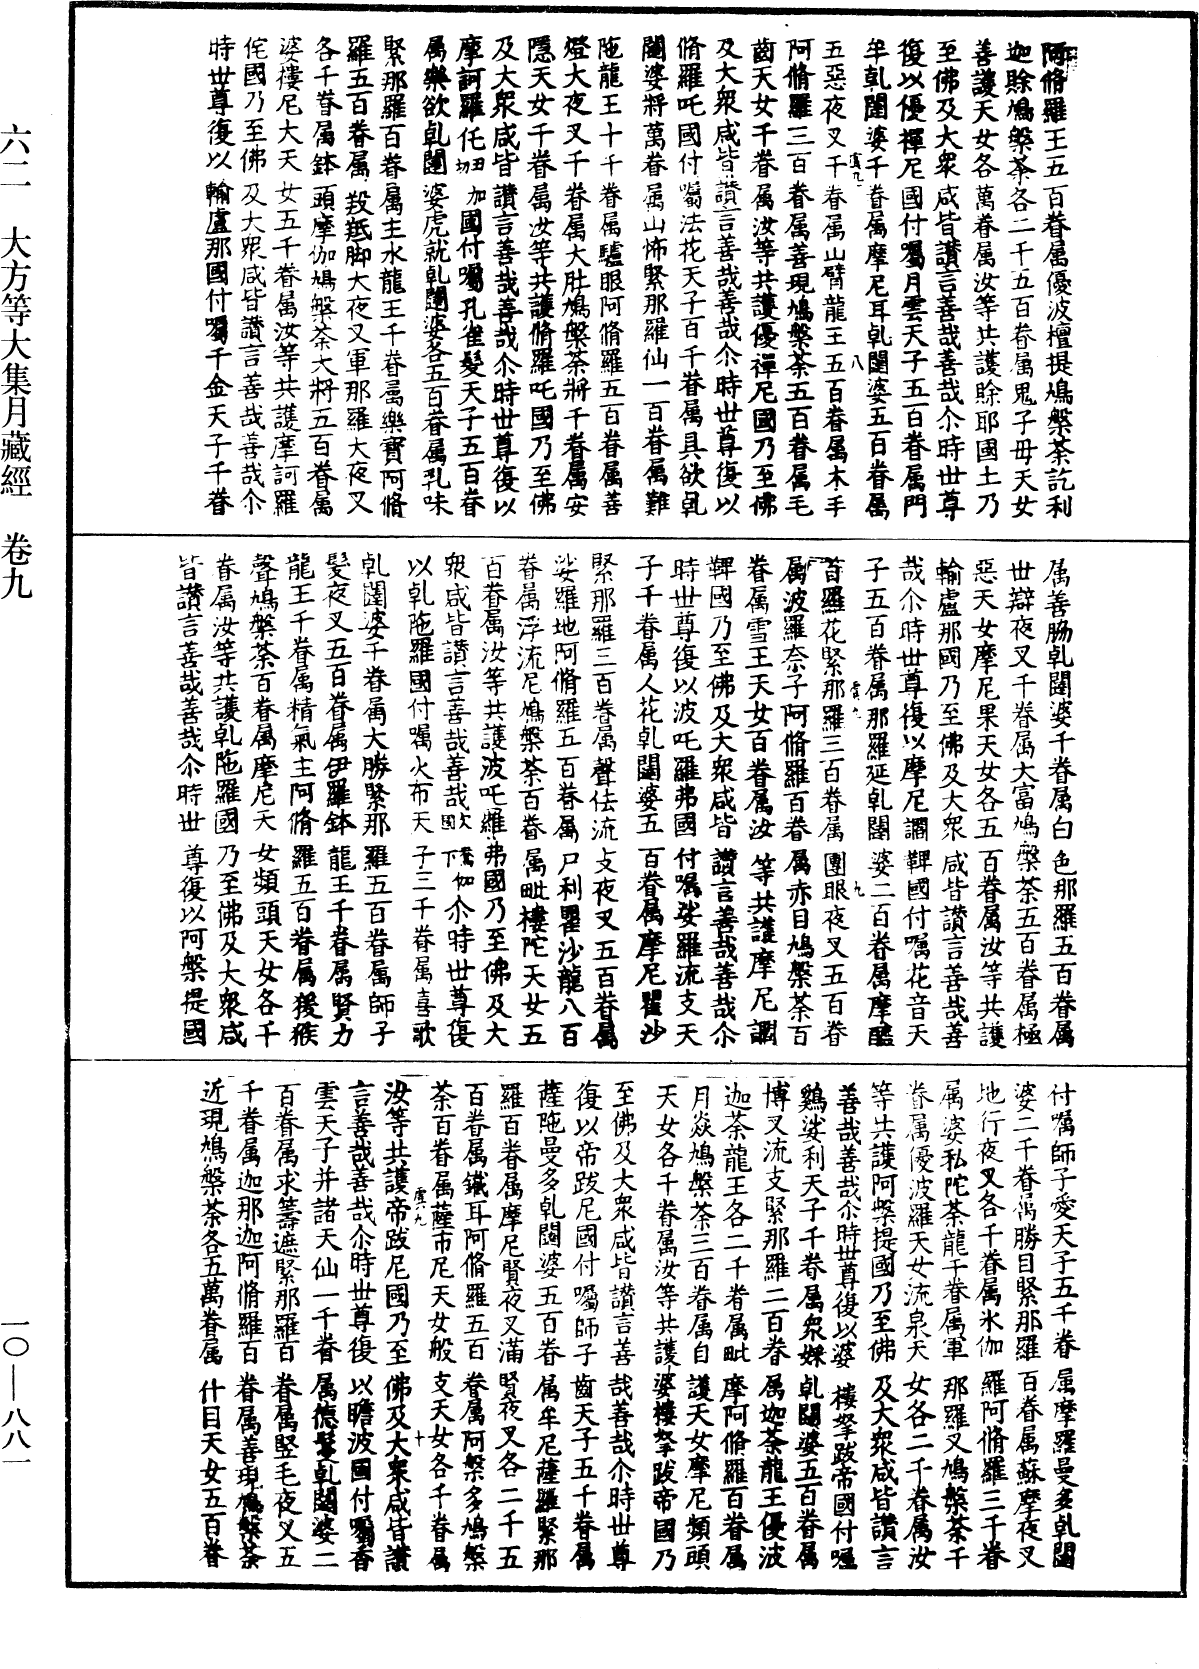 阿脩羅王五百眷属優波檀提鳩槃荼訖利
迦賖鳩槃荼各二千五百眷属鬼子母天女
善護天女各萬眷属汝等共護賖耶國土乃
至佛及大衆咸皆讃言善哉善哉尒時世尊
復以優禪尼國付囑月雲天子五百眷属門
牟乹闥婆千眷属摩尼耳乹闥婆五百眷属
五惡夜叉千眷属山臂龍王五百眷属木手
阿脩羅三百眷属善現鳩槃荼五百眷属毛
齒天女千眷属汝等共護優禪尼國乃至佛
及大衆咸皆讃言善哉善哉尒時世尊復以
脩羅吒國付囑法花天子百千眷属具欲乹
闥婆將萬眷属山怖緊那羅仙一百眷属難
陁龍王十千眷属驢眼阿脩羅五百眷属善
燈大夜叉千眷属大肚鳩槃荼將千眷属安
隱天女千眷属汝等共護脩羅吒國乃至佛
及大衆咸皆讃言善哉善哉尒時世尊復以
摩訶羅侘國付囑孔雀髮天子五百眷
属樂欲乹闥婆虎就乹闥婆各五百眷属乳味
緊那羅百眷属主水龍王千眷属樂寶阿脩
羅五百眷属㲉羝脚大夜叉軍那羅大夜叉
各千眷属鉢頭摩伽鳩槃荼大將五百眷属
婆樓尼大天女五千眷属汝等共護摩訶羅
侘國乃至佛及大衆咸皆讃言善哉善哉尒
時世尊復以輸盧那國付囑千金天子千眷
属善脇乹闥婆千眷属白色那羅五百眷属
世辯夜叉千眷属大富鳩槃荼五百眷属極
惡天女摩尼果天女各五百眷属汝等共護
輸盧那國乃至佛及大衆咸皆讃言善哉善
哉尒時世尊復以摩尼讕鞞國付囑花音天
子五百眷属那羅延乹闥婆二百眷属摩醯
首羅花緊那羅三百眷属團眼夜叉五百眷
属波羅奈子阿脩羅百眷属赤目鳩槃荼百
眷属雪王天女百眷属汝等共護摩尼讕
鞞國乃至佛及大衆咸皆讃言善哉善哉尒
時世尊復以波吒羅弗國付囑娑羅流支天
子千眷属人花乹闥婆五百眷属摩尼瞿沙
緊那羅三百眷属聲佉流支夜叉五百眷属
娑羅地阿脩羅五百眷属尸利瞿沙龍八百
眷属浮流尼鳩槃荼百眷属毗樓陀天女五
百眷属汝等共護波吒羅弗國乃至佛及大
衆咸皆讃言善哉善哉尒時世尊復
以乹陁羅國付囑火布天子三千眷属喜歌
乹闥婆千眷属大勝緊那羅五百眷属師子
髮夜叉五百眷属伊羅鉢龍王千眷属賢力
龍王千眷属精氣主阿脩羅五百眷属獲猴
聲鳩槃荼百眷属摩尼天女頻頭天女各千
眷属汝等共護乹陁羅國乃至佛及大衆咸
皆讃言善哉善哉尒時世尊復以阿槃提國
付囑師子愛天子五千眷属摩羅曼多乹闥
婆二千眷属勝目緊那羅百眷属蘇摩夜叉
地行夜叉各千眷属氷伽羅阿脩羅三千眷
属婆私陀荼龍千眷属軍那羅叉鳩槃荼千
眷属優波羅天女流泉天女各二千眷属汝
等共護阿槃提國乃至佛及大衆咸皆讃言
善哉善哉尒時世尊復以婆樓拏跋帝國付囑
鷄娑利天子千眷属衆婇乹闥婆五百眷属
博叉流支緊那羅二百眷属迦荼龍王優波
迦荼龍王各二千眷属毗摩阿脩羅百眷属
月焱鳩槃荼三百眷属自護天女摩尼頻頭
天女各千眷属汝等共護婆樓拏跋帝國乃
至佛及大衆咸皆讃言善哉善哉尒時世尊
復以帝跋尼國付囑師子齒天子五千眷属
薩陁曼多乹闥婆五百眷属牟尼薩羅緊那
羅百眷属摩尼賢夜叉滿賢夜叉各二千五
百眷属鐵耳阿脩羅五百眷属阿槃多鳩槃
荼百眷属薩市尼天女般支天女各千眷属
汝等共護帝跋尼國乃至佛及大衆咸皆讃
言善哉善哉尒時世尊復以瞻波國付囑香
雲天子并諸天仙一千眷属德髮乹闥婆二
百眷属求籌遮緊那羅百眷属竪毛夜叉五
千眷属迦那迦阿脩羅百眷属善現鳩槃荼
近現鳩槃荼各五萬眷属什目天女五百眷
六二　大方等大集月藏經　卷九
一〇—八八一